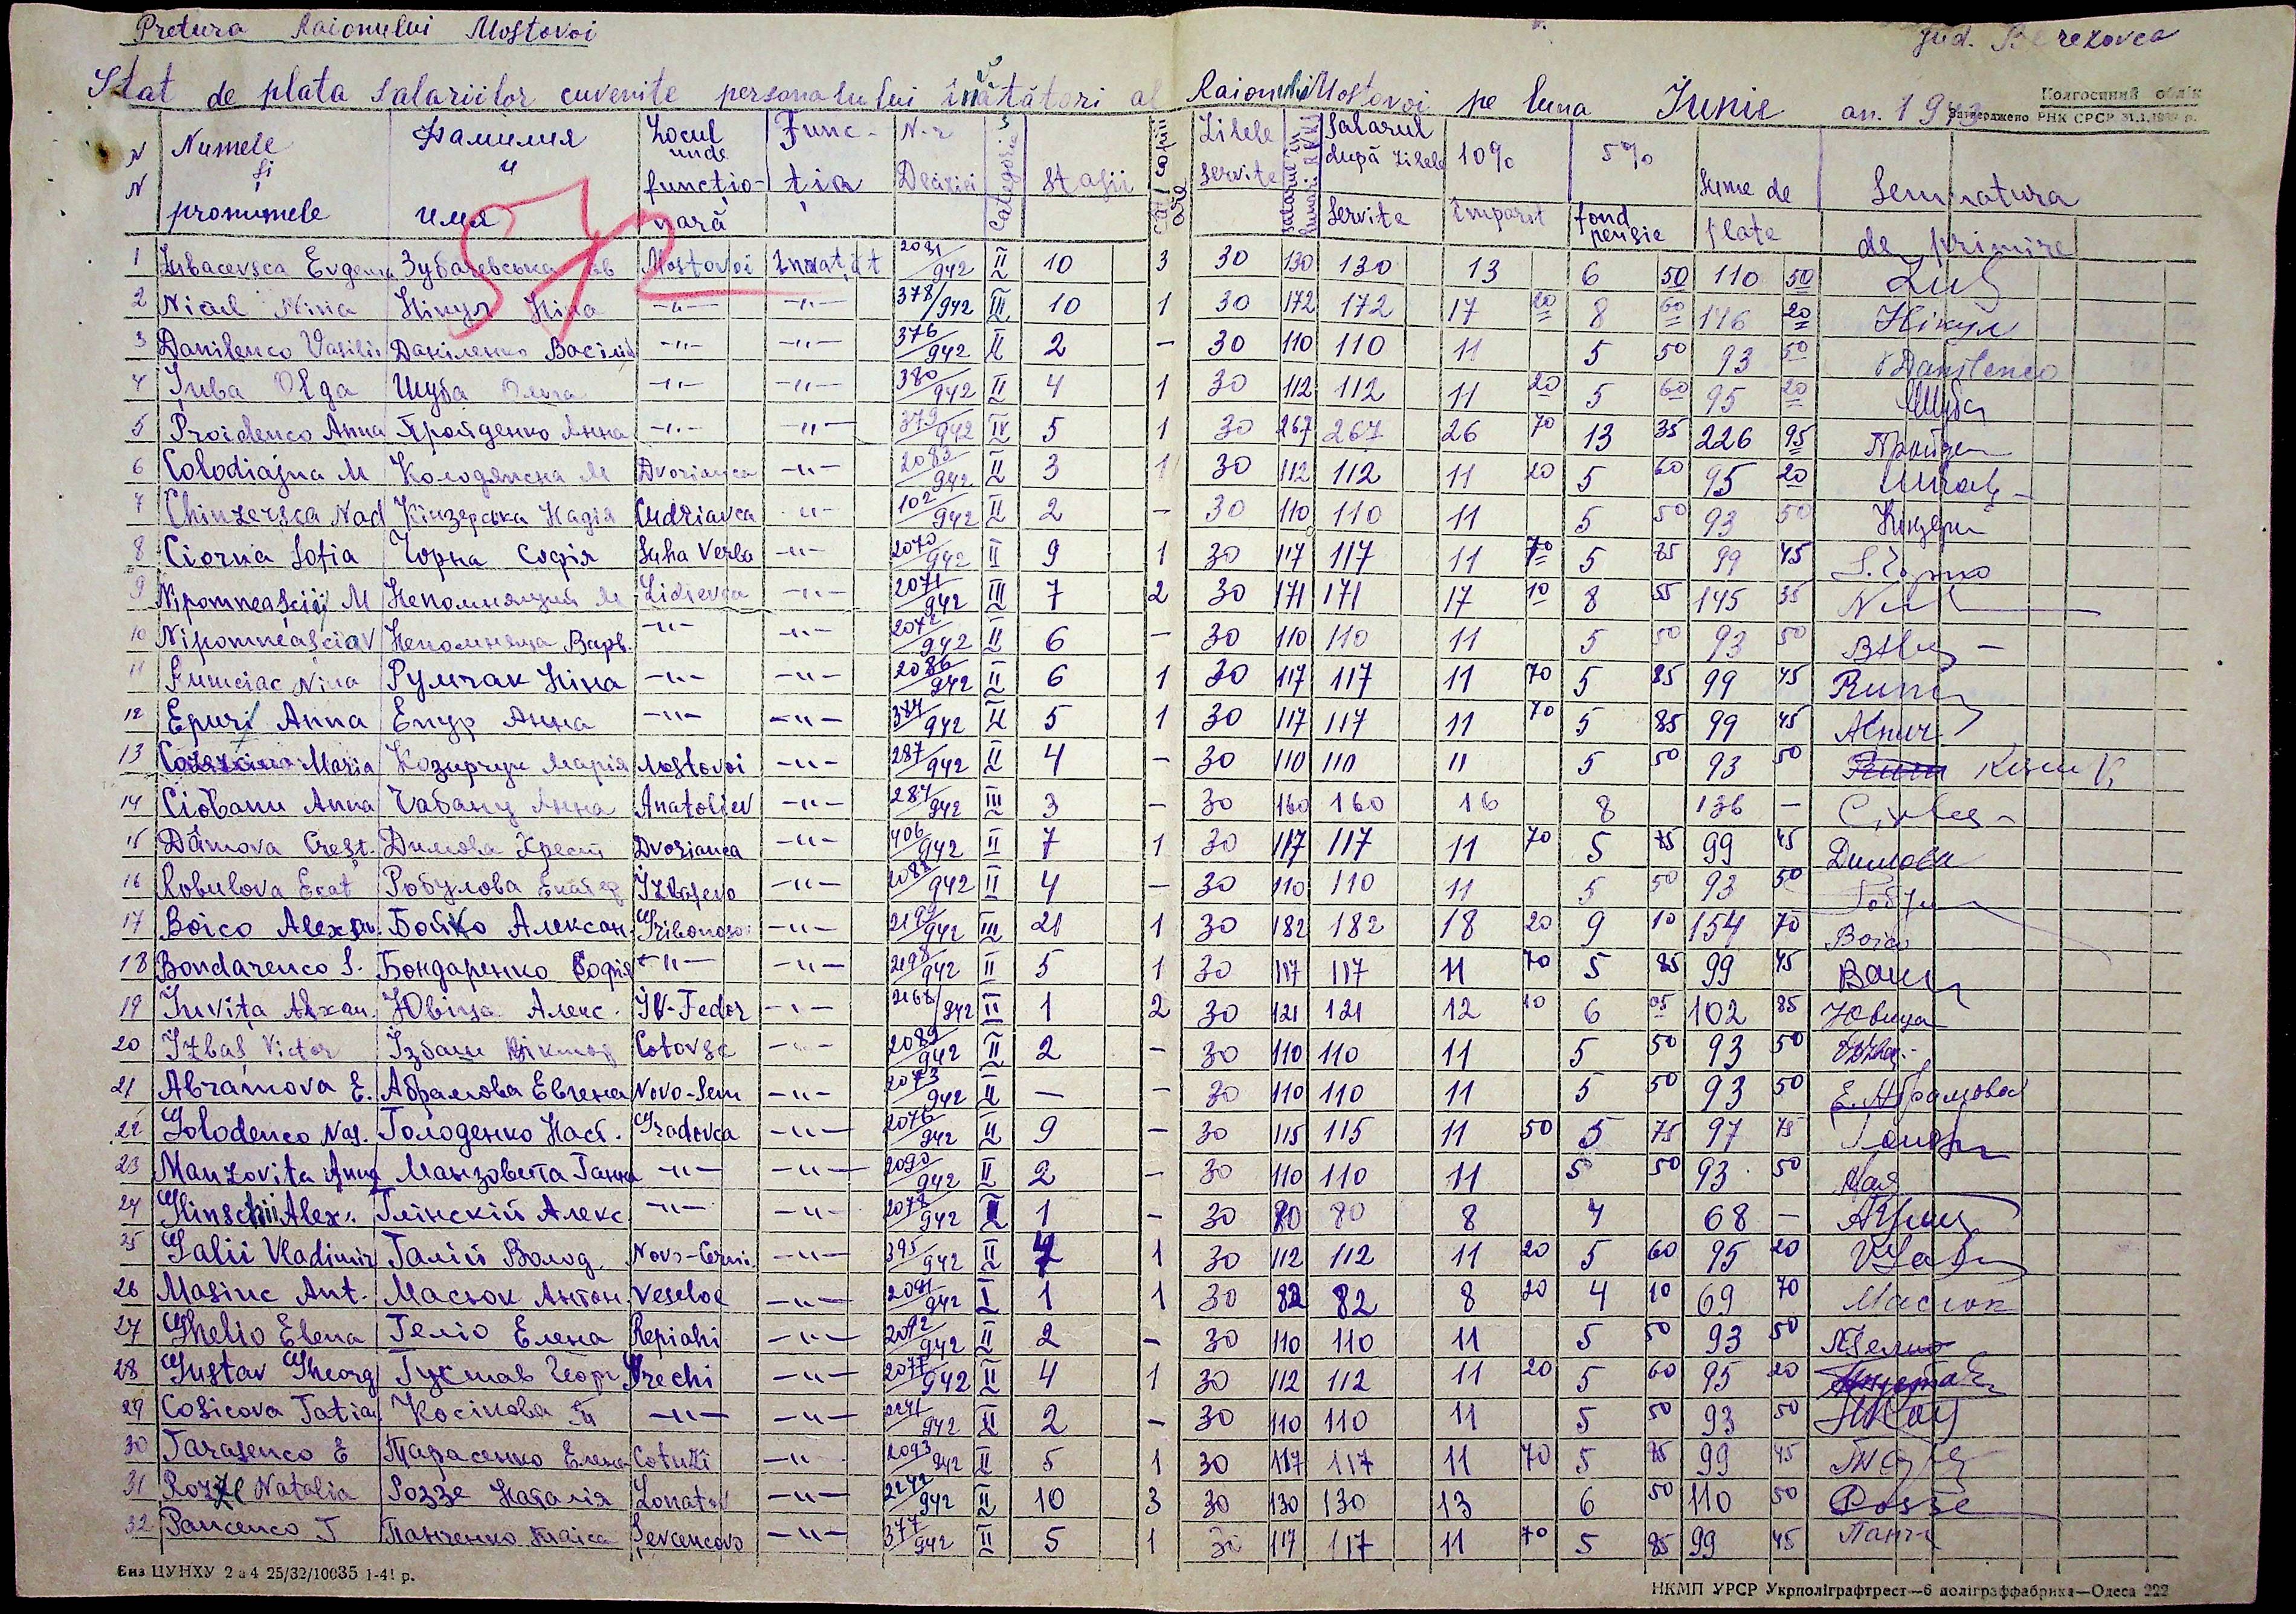 Pretura Raionului Mostovoi
jud. Berezovca
Stat de plata salariilor cuvenite personalului învătători al Raionului Mostovoi pe luna Iunie an. 1943
Колгоспний облік
Затверджено РНК СРСР 31.1.1939 р.
N N Numele și pronumele Фамилия и имя Locul unde functio-nară Func-ția N-r Deciziei Categorie Stajii Câți copii are Zilele servite Salarul în lunari RKKS Salarul după zilele servite 10% împărit 5% fond pensie Sume de plate Semnatura de primire
1 Zubacevsca Evgenia Зубачевська Єв Mostovoi Învațăt 2031/942 II 10 3 30 130 130 13 6 50 110 50 Zub
2 Nicul Nina Нікул Ніна —"— —"— 378/942 III 10 1 30 172 172 17 20 8 60 146 20 Нікул
3 Danilenco Vasilii Даніленко Василій —"— —"— 376/942 II 2 – 30 110 110 11 5 50 93 50 Danilenco
4 Șuba Olga Шуба Ольга —"— —"— 380/942 II 4 1 30 112 112 11 20 5 60 95 20 Шуба
5 Proidenco Anna Пройденко Анна —"— —"— 379/942 IV 5 1 30 267 267 26 70 13 35 226 95 Пройден
6 Colodiajna M Колодянсна М Dvorianca —"— 2083/942 II 3 1 30 112 112 11 20 5 60 95 20
7 Chinzersca Nad Кінзерська Надія Cudriavca —"— 102/942 II 2 – 30 110 110 11 5 50 93 50 Кінзерс
8 Ciorna Sofia Чорна Софія Suha Verba —"— 2070/942 II 9 1 30 117 117 11 70 5 85 99 45 S. Чорна
9 Nipomneașcii M Непомнящий М Lidievca —"— 2071/942 III 7 2 30 171 171 17 10 8 55 145 35
10 Nipomneașcia V Непомняща Варв. —"— —"— 2072/942 II 6 – 30 110 110 11 5 50 93 50
11 Rumciac Nina Румчак Ніна —"— —"— 2086/942 II 6 1 30 117 117 11 70 5 85 99 45 Rum
12 Epuri Anna Епур Анна —"— —"— 384/942 II 5 1 30 117 117 11 70 5 85 99 45 Aepur
13 Maria Козирчук Марія Mostovoi —"— 287/942 II 4 – 30 110 110 11 5 50 93 50
14 Ciobanu Anna Чабану Анна Anatoliev —"— 284/942 III 3 – 30 160 160 16 8 136 –
15 Dâmova Crest. Димова Крест Dvorianca —"— 406/942 II 7 1 30 117 117 11 70 5 85 99 45 Димова
16 Robulova Ecat Робулова Екатер Izbașevo —"— 2088/942 II 4 – 30 110 110 11 5 50 93 50
17 Boico Alexan. Бойко Алексан. Gribonosoi —"— 2199/942 III 21 1 30 182 182 18 20 9 10 154 70 Boico
18 Bondarenco S. Бондаренко Софія —"— —"— 2198/942 II 5 1 30 117 117 11 70 5 85 99 45
19 Iuvița Alxan. Ювіца Алекс. IV-Fedor —"— 2168/942 II 1 2 30 121 121 12 10 6 05 102 85 Ювица
20 Izbaș Victor Ізбаш Віктор Cotovsc —"— 2089/942 II 2 – 30 110 110 11 5 50 93 50
21 Abramova E. Абрамова Евгена Novo-Sem —"— 2073/942 II — – 30 110 110 11 5 50 93 50 Е. Абрамова
22 Golodenco Nas. Голоденко Наст. Gradovca —"— 2076/942 II 9 – 30 115 115 11 50 5 75 97 75
23 Manzovita Anna Манзовета Ганна —"— —"— 2090/942 II 2 – 30 110 110 11 5 50 93 50 Ман
24 Glinschii Alex. Глінскій Алекс —"— —"— 2078/942 I 1 – 30 80 80 8 4 68 –
25 Galii Vladimir Галій Волод. Novo-Cerni. —"— 395/942 II 4 1 30 112 112 11 20 5 60 95 20
26 Masiuc Ant. Масюк Антон. Veseloe —"— 2091/942 I 1 1 30 82 82 8 20 4 10 69 70 Масюк
27 Ghelio Elena Геліо Елена Repiahi —"— 2092/942 II 2 – 30 110 110 11 5 50 93 50 Геліо
28 Gustav Gheorg Густав Георг Grechi —"— 2077/942 II 4 1 30 112 112 11 20 5 60 95 20
29 Cosicova Tatian Косікова Тт —"— —"— 2241/942 II 2 – 30 110 110 11 5 50 93 50
30 Tarasenco E Тарасенко Елена Cotuzi —"— 2093/942 II 5 1 30 117 117 11 70 5 85 99 45
31 Rozze Natalia Роззе Наталія Zonatov —"— 2242/942 II 10 3 30 130 130 13 6 50 110 50 Розse
32 Pancenco T Панченко Таїса Șevcencovo —"— 377/942 II 5 1 30 117 117 11 70 5 85 99 45 Панч
Єнз ЦУНХУ 2 а 4 25/32/10035 1-41 р.
НКМП УРСР Укрполіграфтрест—6 поліграффабрика—Одеса 222